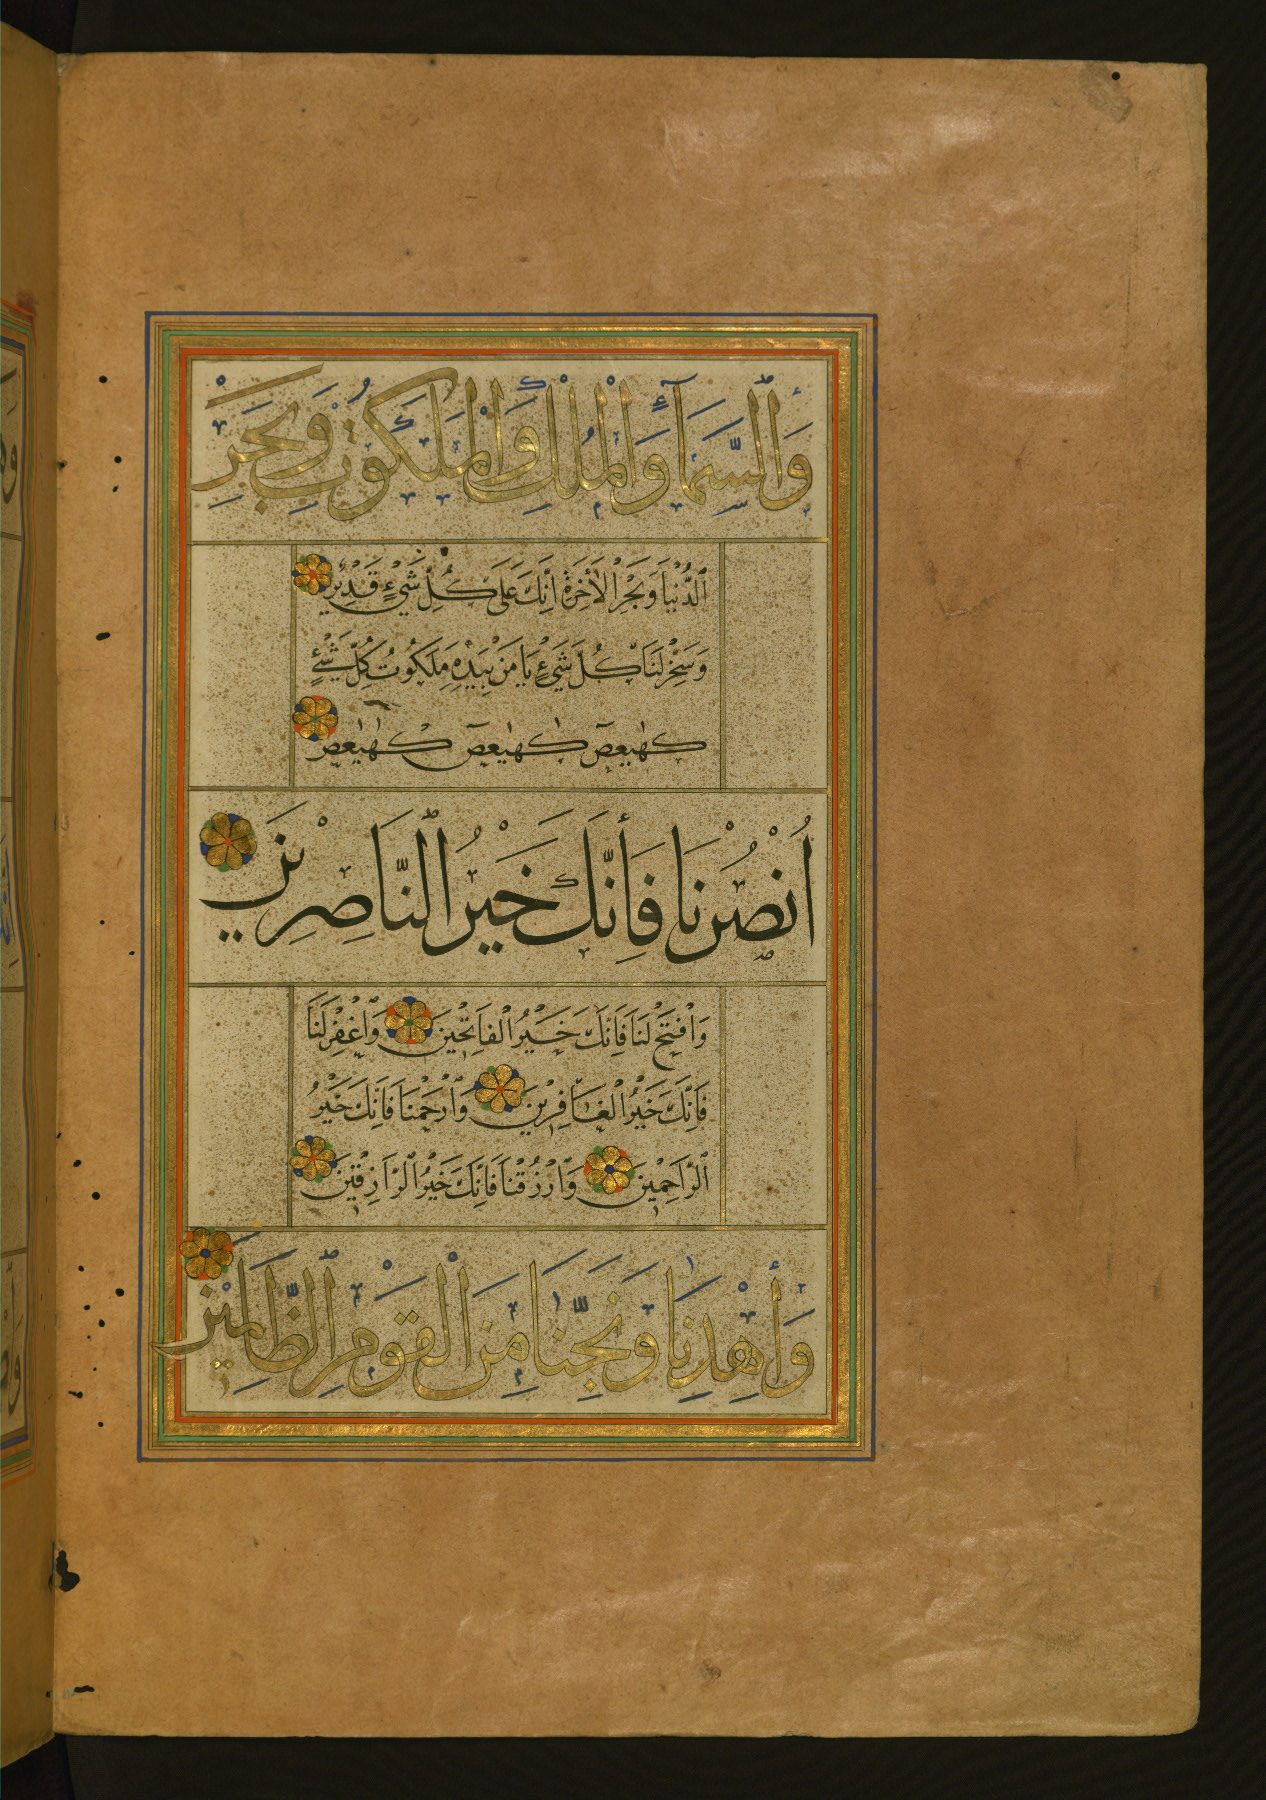 وَالسَّمَآءِ وَالْمُلْكِ وَالْمَلَكُوْتِ وَبَحْرَ
الدُّنْيَا وَبَحْرَ الْاٰخِرَةِ اِنَّكَ عَلَى كُلِّ شَيْءٍ قَدِيْرٌ
وَسَخِّرْ لَنَا كُلَّ شَيْءٍ يَا مَنْ بِيَدِهِ مَلَكُوْتُ كُلِّ شَيْءٍ
كهيعص كهيعص كهيعص
اُنْصُرْنَا فَاِنَّكَ خَيْرُ النَّاصِرِيْنَ
وَافْتَحْ لَنَا فَاِنَّكَ خَيْرُ الْفَاتِحِيْنَ وَاغْفِرْ لَنَا
فَاِنَّكَ خَيْرُ الْغَافِرِيْنَ وَارْحَمْنَا فَاِنَّكَ خَيْرُ
الرَّاحِمِيْنَ وَارْزُقْنَا فَاِنَّكَ خَيْرُ الرَّازِقِيْنَ
وَاهْدِنَا وَنَجِّنَا مِنَ الْقَوْمِ الظَّالِمِيْنَ